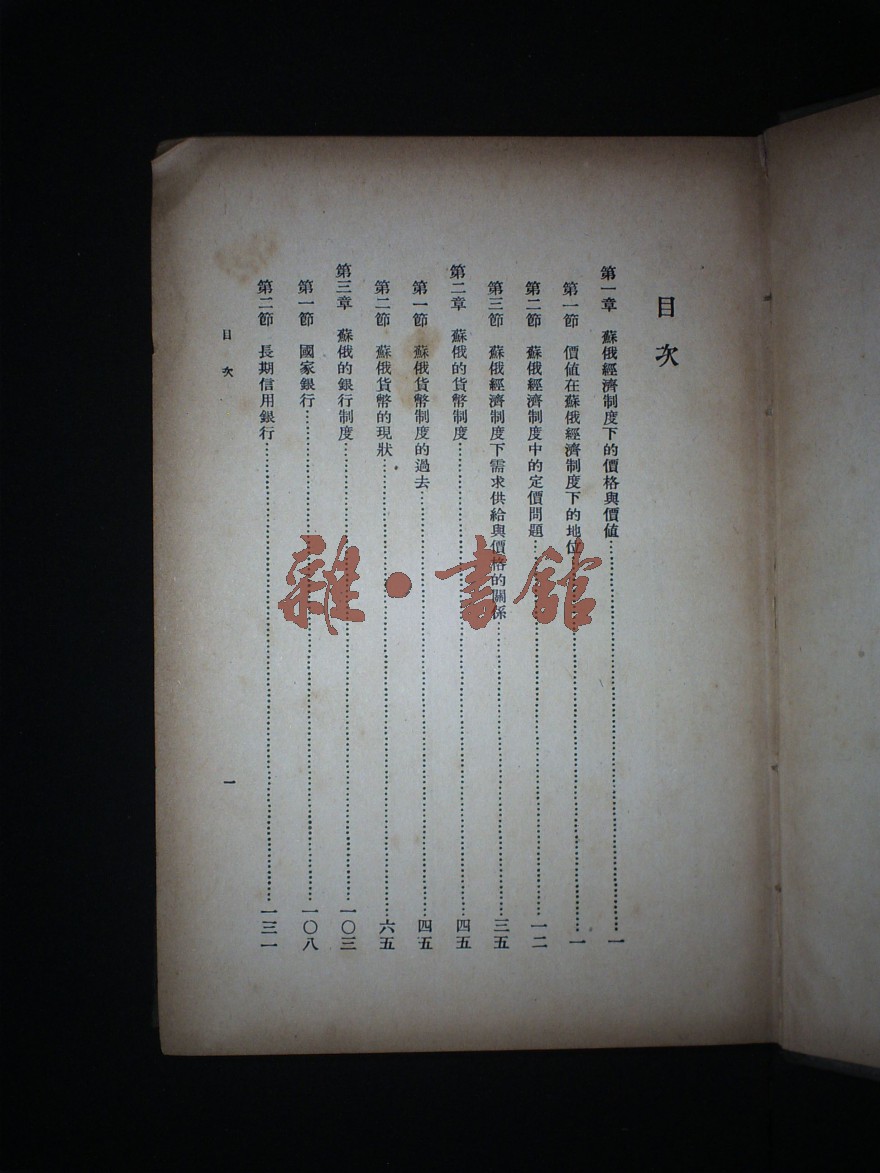 目次
第一章 蘇俄經濟制度下的價格與價値……一
第一節 價値在蘇俄經濟制度下的地位……一
第二節 蘇俄經濟制度中的定價問題……一二
第三節 蘇俄經濟制度下需求供給與價格的關係……三五
第二章 蘇俄的貨幣制度……四五
第一節 蘇俄貨幣制度的過去……四五
第二節 蘇俄貨幣的現狀……六五
第三章 蘇俄的銀行制度……一〇三
第一節 國家銀行……一〇八
第二節 長期信用銀行……一三一
目次 一
雜·書館